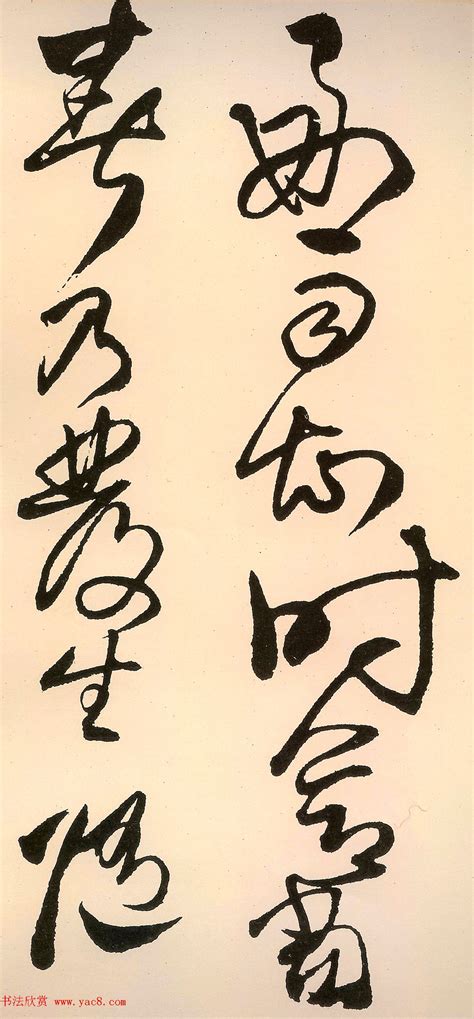 雨司知时节当
春乃发生随
书法欣赏 www.yac8.com